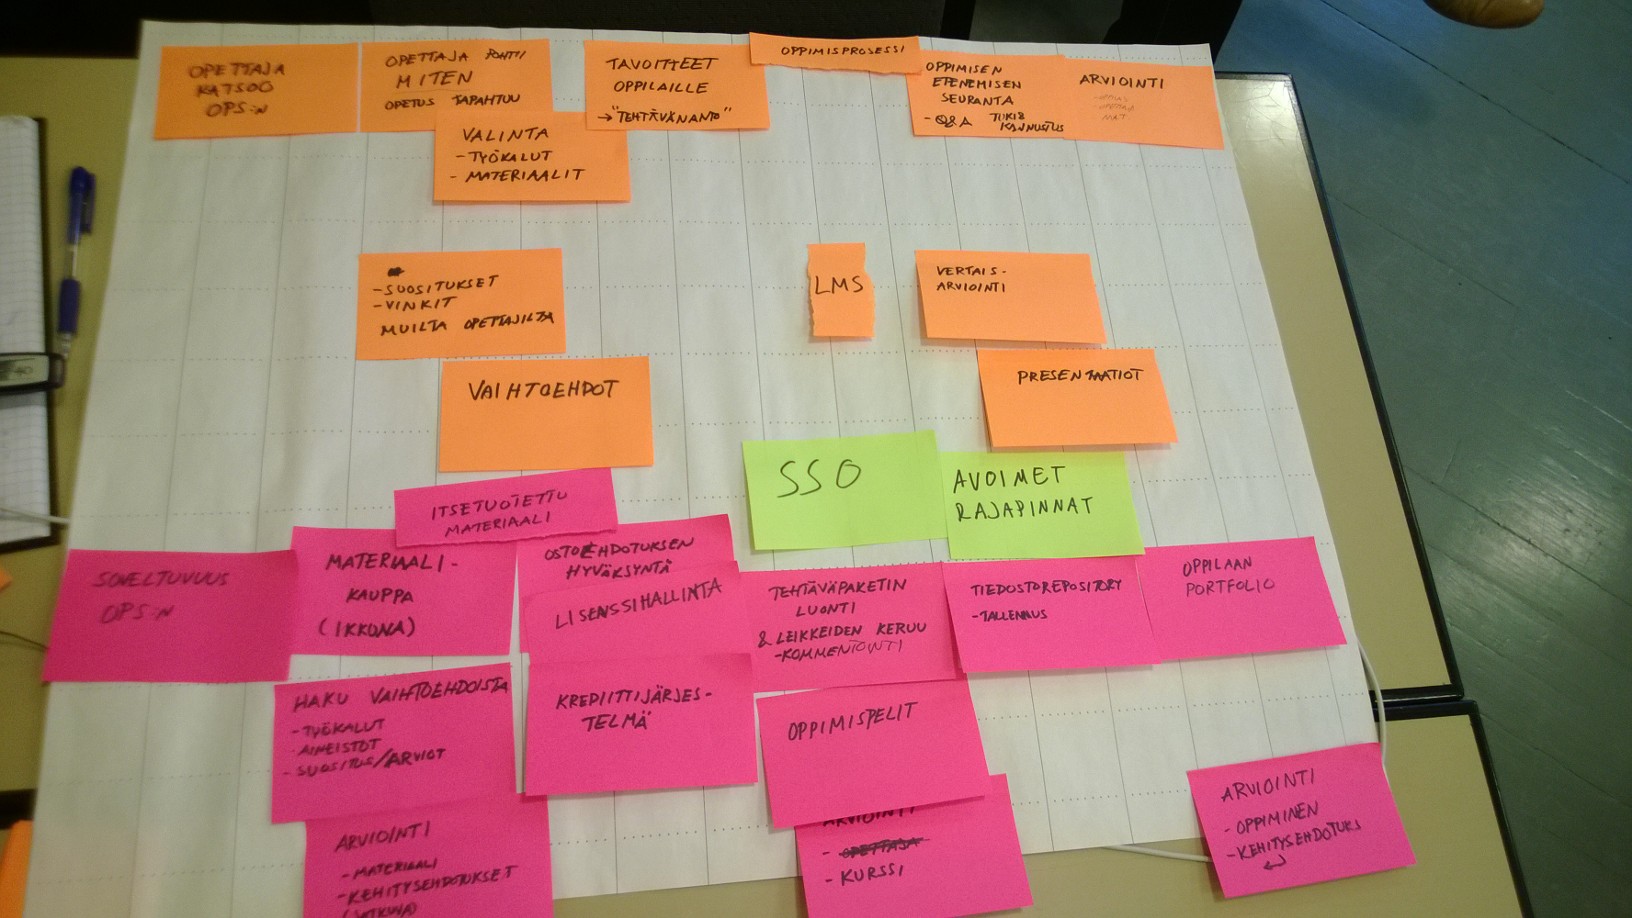 OPETTAJA
KATSOO
OPS:N
OPETTAJA POHTII
MITEN
OPETUS TAPAHTUU
VALINTA
- TYÖKALUT
- MATERIAALIT
TAVOITTEET
OPPILAILLE
→ "TEHTÄVÄNANTO"
OPPIMISPROSESSI
OPPIMISEN
ETENEMISEN
SEURANTA
- Q&A TUKI &
KANNUSTUS
ARVIOINTI
MAT.
- SUOSITUKSET
- VINKIT
MUILTA OPETTAJILTA
LMS
VERTAIS-
ARVIOINTI
VAIHTOEHDOT
PRESENTAATIOT
SSO
AVOIMET
RAJAPINNAT
ITSETUOTETTU
MATERIAALI
SOVELTUVUUS
OPS:N
MATERIAALI-
KAUPPA
(IKKUNA)
OSTOEHDOTUKSEN
HYVÄKSYNTÄ
LISENSSIHALLINTA
TEHTÄVÄPAKETIN
LUONTI
& LEIKKEIDEN KERUU
- KOMMENTOINTI
TIEDOSTOREPOSITORY
- TALLENNUS
OPPILAAN
PORTFOLIO
HAKU VAIHTOEHDOISTA
- TYÖKALUT
- AINEISTOT
- SUOSITUS/ARVIOT
KREDIITTIJÄRJES-
TELMÄ
OPPIMISPELIT
ARVIOINTI
- MATERIAALI
- KEHITYSEHDOTUKSET
ARVIOINTI
- OPETTAJA
- KURSSI
ARVIOINTI
- OPPIMINEN
- KEHITYSEHDOTUKS